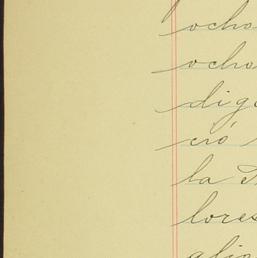 ocho
ocho
dig
cró
la
lores